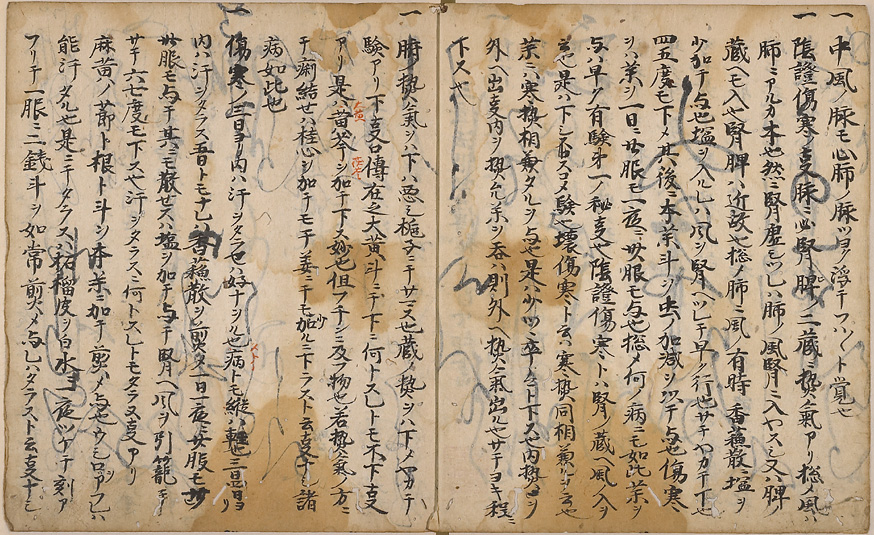 一中風ノ脉モ心肺ノ脉ツヨク浮テフハ〱ト覚也
一陰證傷寒ノ支脉ニ必腎脾ノ二蔵ニ熱氣アリ総〆風ハ
肺ニアルカ本也然ニ腎虚シツレハ肺ノ風腎ニ入ヤスシ又ハ脾
蔵ヘモ入也腎脾ハ近故也総ノ肺ニ風ノ有時ハ香蘓散ニ塩ヲ
少加テ与也塩ヲ入ルレハ風ヲ腎ヘツレテ早ク行也サテヤカテ下也
四五度モ下〆其後ニ本薬斗ヲ虫ノ加減ヲ以テ与也傷寒
ヲハ薬ヲ一日ニ廿服モ一夜ニ廿服モ与也総〆何ノ病ニモ如此薬ヲ
与ハ早ク有驗第一ノ秘支也陰證傷寒トハ腎ノ蔵ヘ風ノ入ヲ
云也是ハ下シ
験也壊傷寒ト云ハ寒熱同相兼ルヲ云也
薬ハ寒熱相兼タルヲ与也是ハ少ツヽ
下ス也内熱ヲ
外ヘ出支内ヲ熱スル薬ヲ呑ハ則外ヘ熱氣出ル也サテヨキ程ニ
下ス也
一時ノ熱氣ヲハ下ハ悪シ梔子ニテサマス也蔵ノ熱ヲハ下〆ヤカテ
驗アリ下支口傳在之大黄斗ニテ下ニ何トスレトモ不下支
アリ是ハ黄芩ヲ加テ下ス妙也但フチンニ及フ物也若熱氣ノ方ニ
テ痢結セハ桂心ヲ加テモ干姜ニテモ加ルニ下ラスト云支ナシ諸
病如此也
一傷寒ニ三日ヨリ内ハ汗ヲタラセハ好ナヲル也病トモ縦ハ軽
三日ヨリ
内ハ汗ヲタラス五日トモナレハ香蘓散ヲ煎〆一日一夜ニ廿服モ卅
廿服モ与テ其ニモ散セスハ塩ヲ加テ与テ腎ヘ風ヲ引籠テ
サテ六七度モ下ス也汗ヲタラスニ何トスレトモタラヌ支アリ
麻黄ノ節ト根ト斗ヲ本薬ニ加テ煎〆与也ウシロアフレハ
能汗タル也是ニテタラスハ
皮ヲ白水ニ一夜ツケテ刻ア
フリテ一服ニ二銭斗ヲ如常ノ煎〆与レハタラスト云支ナシ